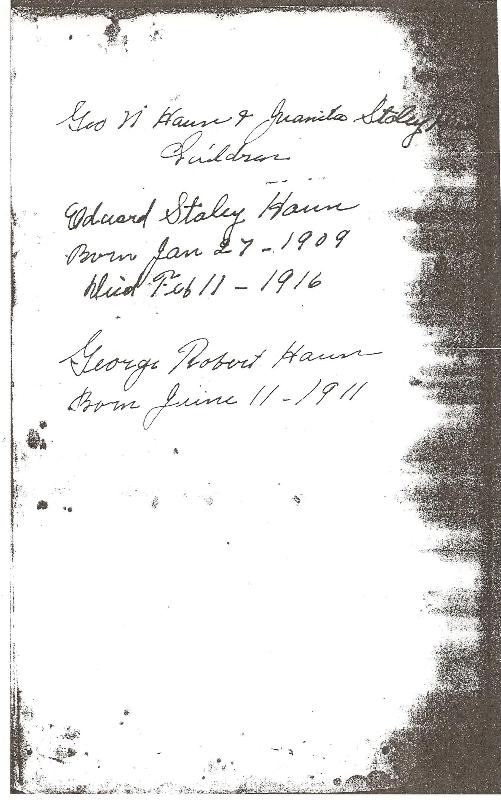 Geo N Haun & Juanita Staley
Children
Edward Staley Haun
Born Jan 27 - 1909
Died Feb 11 - 1916
George Robert Haun
Born June 11 - 1911